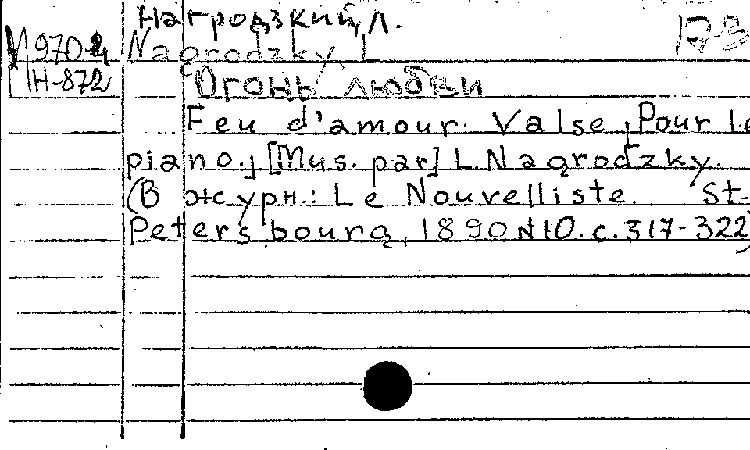 Нагродзкий, Л. 173
М 970-2 Nagrodzky, L
Н-872 Огонь любви
Feu d'amour. Valse, Pour le
piano.; [Mus. par] L Nagrodzky.
(В журн.: Le Nouvelliste. St-
Petersbourg, 1890 N10. с. 317-322)